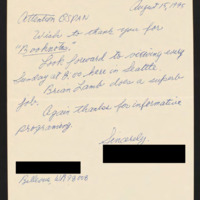 August 15, 1998
Attention CSPAN
Wish to thank you for
"Booknotes."
Look forward to viewing every
Sunday at 8:00 here in Seattle
Brian Lamb does a superb
job.
Again thanks for informative
programing.
Sincerely